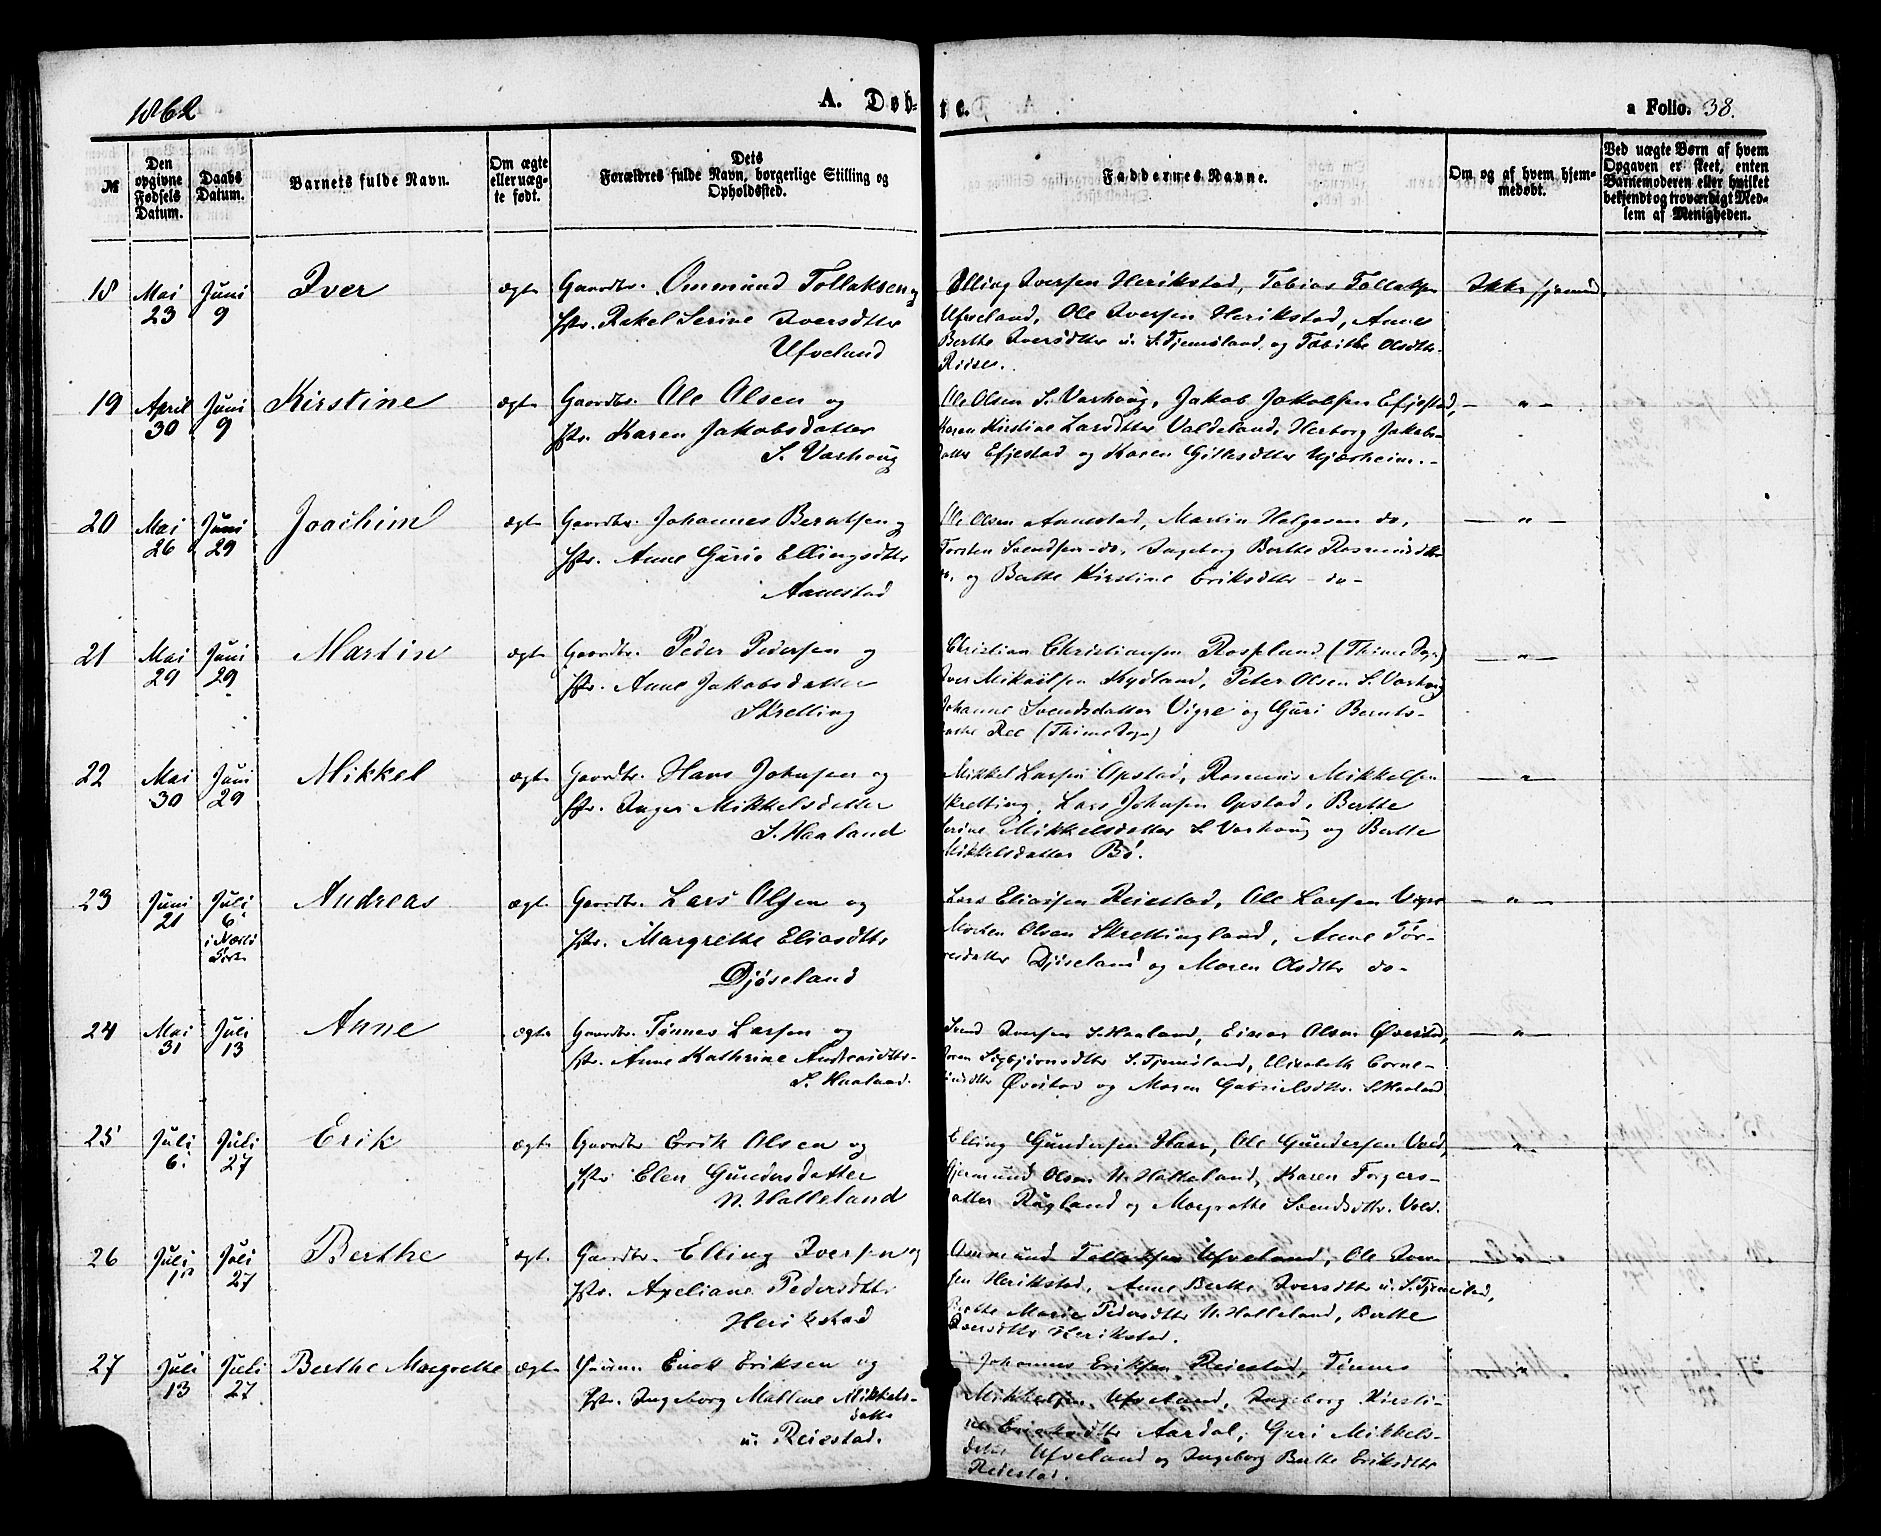 1862
A. Døb-
te.
a Folio. 38.
№
Den opgivne Fødsels Datum.
Daabs Datum.
Barnets fulde Navn.
Om ægte eller uægte født.
Dets Forældres fulde Navn, borgerlige Stilling og Opholdssted.
Faddernes Navne.
Om og af hvem hjemmedøbt.
Ved uægte Børn af hvem Opgaven er skeet, enten Barnemoderen eller hvilket bekjendt og troværdigt Medlem af Menigheden.
18 Mai 23 Juni 9 Iver ægte Gaardbr. Ommund Tollaksen og
Hstr. Rakel Serine Iversdtter
Ufveland
Elling Iversen Herikstad, Tobias Tollaksen
Ufveland, Ole Iversen Herikstad, Anne
Berthe Iversdtter u. S. Tjemsland, og Tabithe Olsdtter
Ikke hjemmed.
19 April 30 Juni 9 Kirstine ægte Gaardbr. Ole Olsen og
Hstr. Karen Jakobsdatter
S. Varhoug
Ole Olsen S. Varhoug, Jakob Jakobsen Efjestad,
Karen Kirstine Larsdtter Valdeland, Herborg Jakobs-
datter Efjestad og Karen Gitlesdtter Njærheim.
— " —
20 Mai 26 Juni 29 Joachim ægte Gaardbr. Johannes Berntsen og
Hstr. Anne Gurie Ellingsdtter
Aanestad
Ole Olsen Aanestad, Martin Helgesen do,
Torsten Svendsen do, Ingeborg Berthe Rasmusdtter
do, og Berthe Kirstine Eriksdtter - do -
— " —
21 Mai 29 Juni 29 Martin ægte Gaardbr. Peder Pedersen og
Hstr. Anne Jakobsdatter
Skretting
Christian Christiansen Rosseland (Thime Sogn)
Iver Mikaelsen Kydland, Peter Olsen S. Varhoug
Johanne Svendsdatter Vigre og Guri Bernts-
datter Ree (Thime Sogn)
— " —
22 Mai 30 Juni 29 Mikkel ægte Gaardbr. Hans Johnsen og
Hstr. Inger Mikkelsdatter
S. Haaland
Mikkel Larsen Opstad, Rasmus Mikkelsen
Skretting, Lars Johnsen Opstad, Berthe
Serine Mikkelsdatter S. Varhoug og Berthe
Mikkelsdatter Bø.
— " —
23 Juni 21 Juli 6 i Nærbø Kirke Andreas ægte Gaardbr. Lars Olsen og
Hstr. Margrethe Eliasdtter
Djøseland
Lars Eliassen Reiestad, Ole Larsen Vigre
Morten Olsen Skrettingland, Anne Tør-
resdatter Djøseland og Maren Olsdtter do-
— " —
24 Mai 31 Juli 13 Anne ægte Gaardbr. Tønnes Larsen og
Hstr. Anne Kathrine Andreasdtter
S. Haaland.
Svend Iversen S. Haaland, Einar Olsen Øvestad,
Karen Sigbjørnsdtter S. Tjemsland, Elisabeth Corne-
liusdtter Øvestad og Maren Gabrielsdtter S. Haaland
— " —
25 Juli 6 Juli 27 Erik ægte Gaardbr Erik Olsen og
Hstr Elen Gundersdatter
N. Halleland
Elling Gundersen Haar, Ole Gundersen Vold,
Gjermund Olsen N. Halleland, Karen Torgers-
datter Rugland og Margrethe Svendsdtter Vold.
— " —
26 Juli Juli 27 Berthe ægte Gaardbr. Elling Iversen og
Hstr. Axeliane Pedersdtter
Herikstad
Ommund Tollaksen Ufveland, Ole Iver-
sen Herikstad, Anne Berthe Iversdtter u. S. Tjemsland,
Berthe Marie Pedersdtter N. Halleland, Berthe
Iversdtter Herikstad.
— " —
27 Juli 13 Juli 27 Berthe Margrethe ægte Enok Eriksen og
Hstr. Ingeborg Mallene Mikkels-
datter
u. Reiestad.
Johannes Eriksen Reiestad, Tønnes
Mikkelsen Ufveland, Ingeborg Kirsti-
ne Eriksdtter Aardal, Guri Mikkels-
datter Ufveland og Ingeborg Berthe Eriksdtter
Reiestad.
— " —